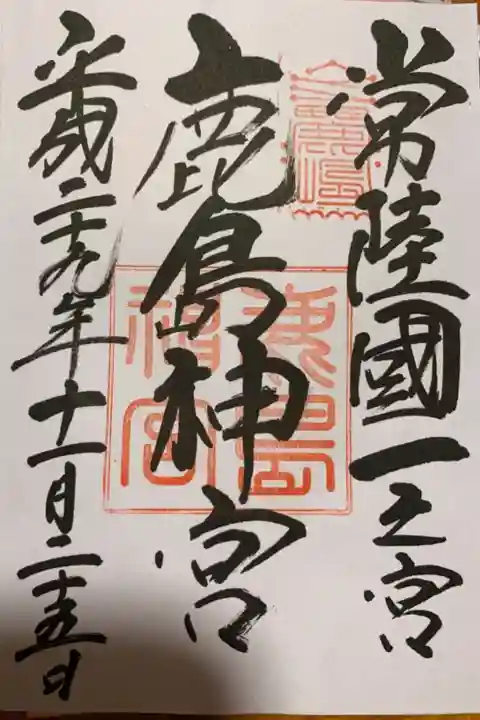 常陸國一之宮
鹿島神宮
平成二十九年十一月二十五日
鹿島神宮